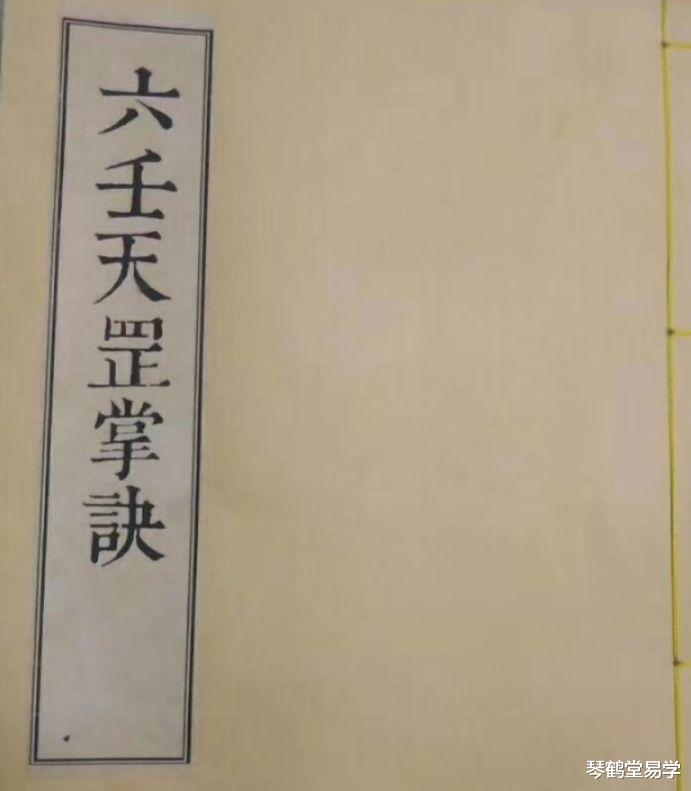 六壬天罡掌訣
琴鹤堂易学